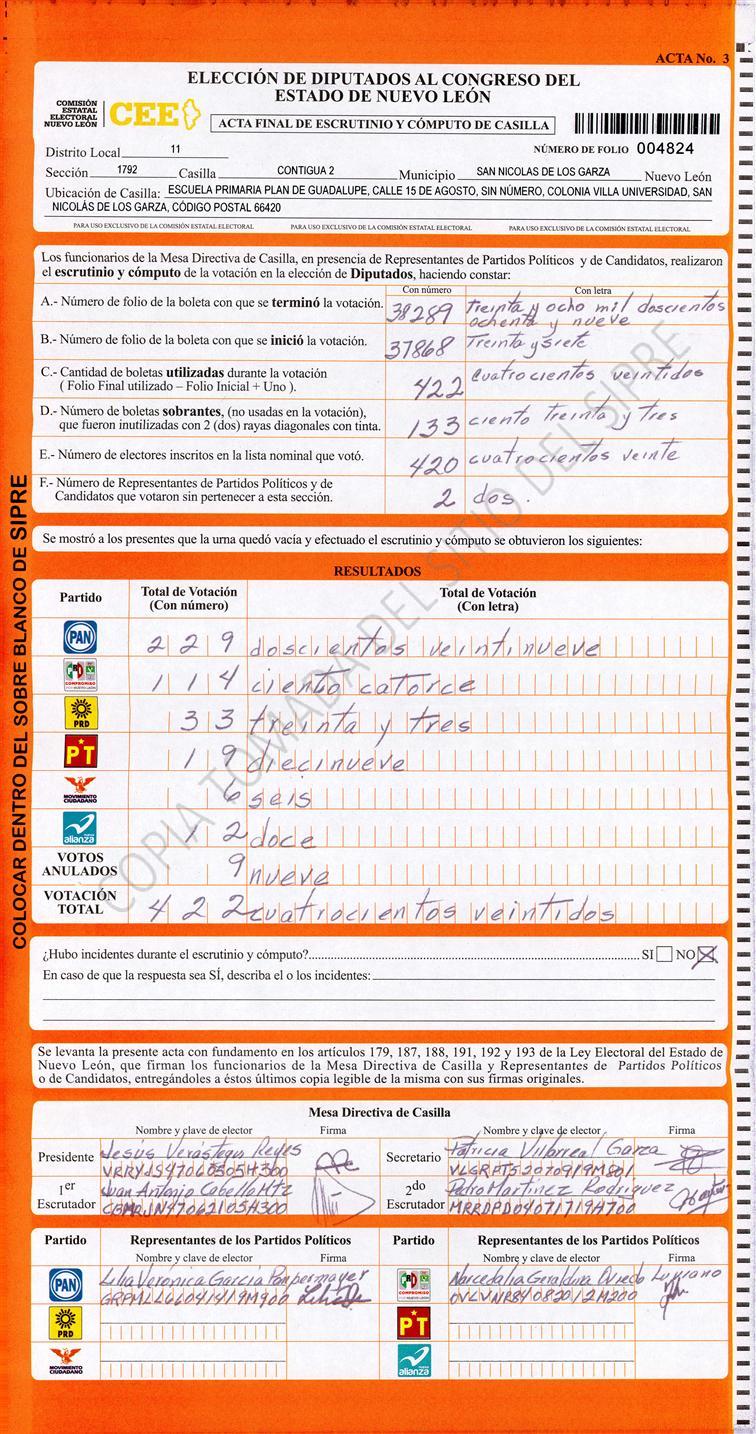 ACTA No. 3
ELECCIÓN DE DIPUTADOS AL CONGRESO DEL
ESTADO DE NUEVO LEÓN
COMISIÓN
ESTATAL
ELECTORAL
NUEVO LEÓN
CEE
ACTA FINAL DE ESCRUTINIO Y CÓMPUTO DE CASILLA
Distrito Local 11 NÚMERO DE FOLIO 004824
Sección 1792 Casilla CONTIGUA 2 Municipio SAN NICOLAS DE LOS GARZA Nuevo León
Ubicación de Casilla: ESCUELA PRIMARIA PLAN DE GUADALUPE, CALLE 15 DE AGOSTO, SIN NÚMERO, COLONIA VILLA UNIVERSIDAD, SAN
NICOLÁS DE LOS GARZA, CÓDIGO POSTAL 66420
PARA USO EXCLUSIVO DE LA COMISIÓN ESTATAL ELECTORAL PARA USO EXCLUSIVO DE LA COMISIÓN ESTATAL ELECTORAL PARA USO EXCLUSIVO DE LA COMISIÓN ESTATAL ELECTORAL
Los funcionarios de la Mesa Directiva de Casilla, en presencia de Representantes de Partidos Políticos y de Candidatos, realizaron
el escrutinio y cómputo de la votación en la elección de Diputados, haciendo constar:
Con número Con letra
A.- Número de folio de la boleta con que se terminó la votación. 38289 treinta y ocho mil doscientos
ochenta y nueve
B.- Número de folio de la boleta con que se inició la votación. 37868 Treinta y siete
C.- Cantidad de boletas utilizadas durante la votación
( Folio Final utilizado – Folio Inicial + Uno ). 422 cuatrocientos veintidos
D.- Número de boletas sobrantes, (no usadas en la votación),
que fueron inutilizadas con 2 (dos) rayas diagonales con tinta. 133 ciento treinta y tres
E.- Número de electores inscritos en la lista nominal que votó. 420 cuatrocientos veinte
F.- Número de Representantes de Partidos Políticos y de
Candidatos que votaron sin pertenecer a esta sección. 2 dos.
Se mostró a los presentes que la urna quedó vacía y efectuado el escrutinio y cómputo se obtuvieron los siguientes:
RESULTADOS
Partido Total de Votación (Con número) Total de Votación (Con letra)
PAN 229 doscientos veintinueve
PRI COMPROMISO POR NUEVO LEÓN 114 ciento catorce
PRD 33 treinta y tres
PT 19 diecinueve
MOVIMIENTO CIUDADANO 6 seis
nueva alianza 12 doce
VOTOS ANULADOS 9 nueve
VOTACIÓN TOTAL 422 cuatrocientos veintidos
¿Hubo incidentes durante el escrutinio y cómputo? SI NO X
En caso de que la respuesta sea SÍ, describa el o los incidentes:
Se levanta la presente acta con fundamento en los artículos 179, 187, 188, 191, 192 y 193 de la Ley Electoral del Estado de
Nuevo León, que firman los funcionarios de la Mesa Directiva de Casilla y Representantes de Partidos Políticos
o de Candidatos, entregándoles a éstos últimos copia legible de la misma con sus firmas originales.
Mesa Directiva de Casilla
Nombre y clave de elector Firma Nombre y clave de elector Firma
Presidente Jesús Verástegui Reyes Secretario Patricia Villarreal Garza
1er Escrutador Juan Antonio Cabello Mtz 2do Escrutador Pedro Martínez Rodríguez
Partido Representantes de los Partidos Políticos Partido Representantes de los Partidos Políticos
Nombre y clave de elector Firma Nombre y clave de elector Firma
PAN Lilia Verónica García PRI COMPROMISO POR NUEVO LEÓN Geraldina Oviedo Luviano
PRD PT
MOVIMIENTO CIUDADANO nueva alianza
COLOCAR DENTRO DEL SOBRE BLANCO DE SIPRE
COPIA TOMADA DEL SITIO DEL SIPRE